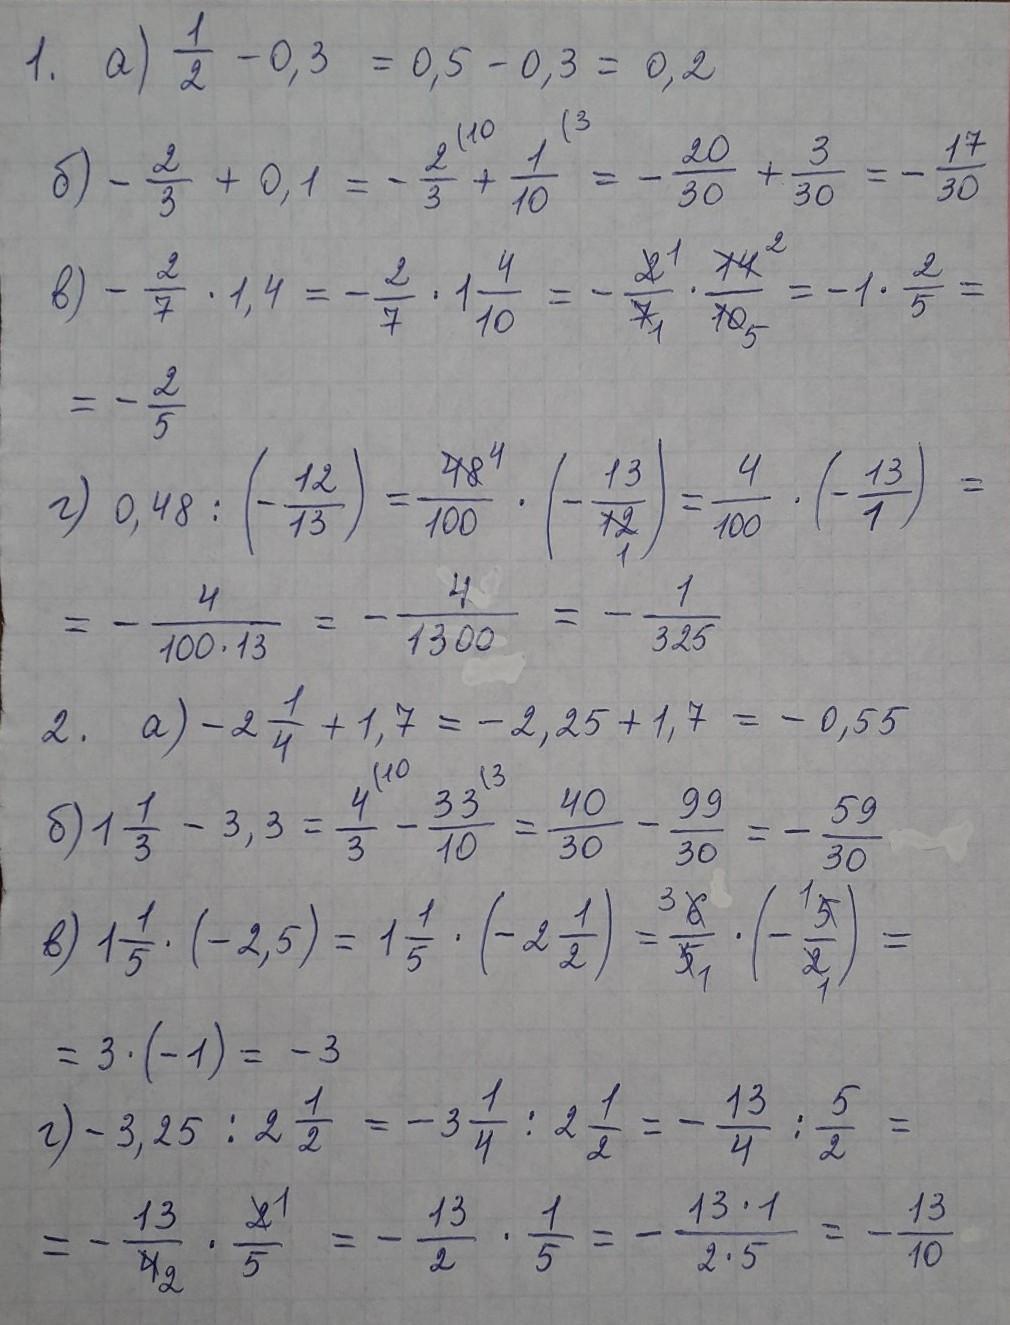 1. а) 1/2 - 0,3 = 0,5 - 0,3 = 0,2
б) - 2/3 + 0,1 = - 2/3 (10 + 1/10 (3 = - 20/30 + 3/30 = - 17/30
в) - 2/7 · 1,4 = - 2/7 · 1 4/10 = - 2 1/7 1 · 14 2/10 5 = - 1 · 2/5 =
= - 2/5
г) 0,48 : (- 12/13) = 48 4/100 · (- 13/12 1) = 4/100 · (- 13/1) =
= - 4/100·13 = - 4/1300 = - 1/325
2. а) - 2 1/4 + 1,7 = - 2,25 + 1,7 = - 0,55
б) 1 1/3 - 3,3 = 4/3 (10 - 33/10 (3 = 40/30 - 99/30 = - 59/30
в) 1 1/5 · (- 2,5) = 1 1/5 · (- 2 1/2) = 3 6/5 1 · (- 1 5/2 1) =
= 3 · (- 1) = - 3
г) - 3,25 : 2 1/2 = - 3 1/4 : 2 1/2 = - 13/4 : 5/2 =
= - 13/4 2 · 2 1/5 = - 13/2 · 1/5 = - 13·1/2·5 = - 13/10